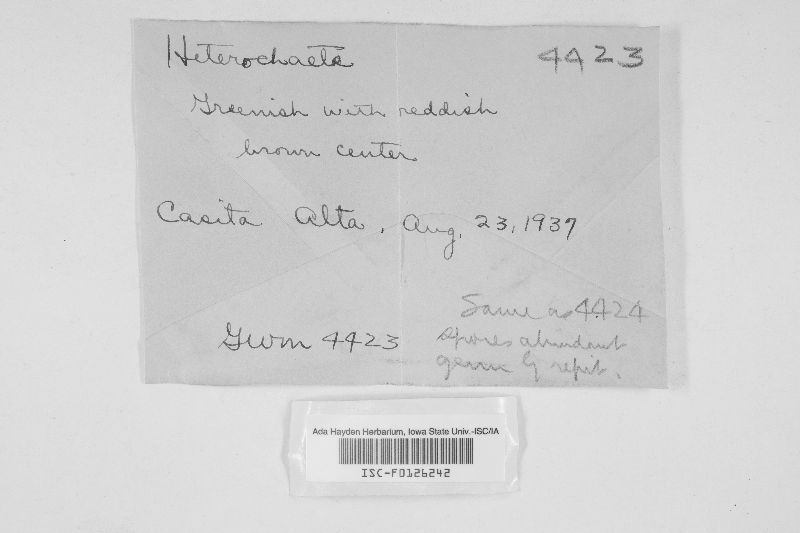 Heterochaete 4423
Greenish with reddish
brown center
Casita Alta, Aug. 23, 1937
Same as 4424
GWM 4423 spores abundant
germ by repit.
Ada Hayden Herbarium, Iowa State Univ.-ISC/IA
ISC-F0126242